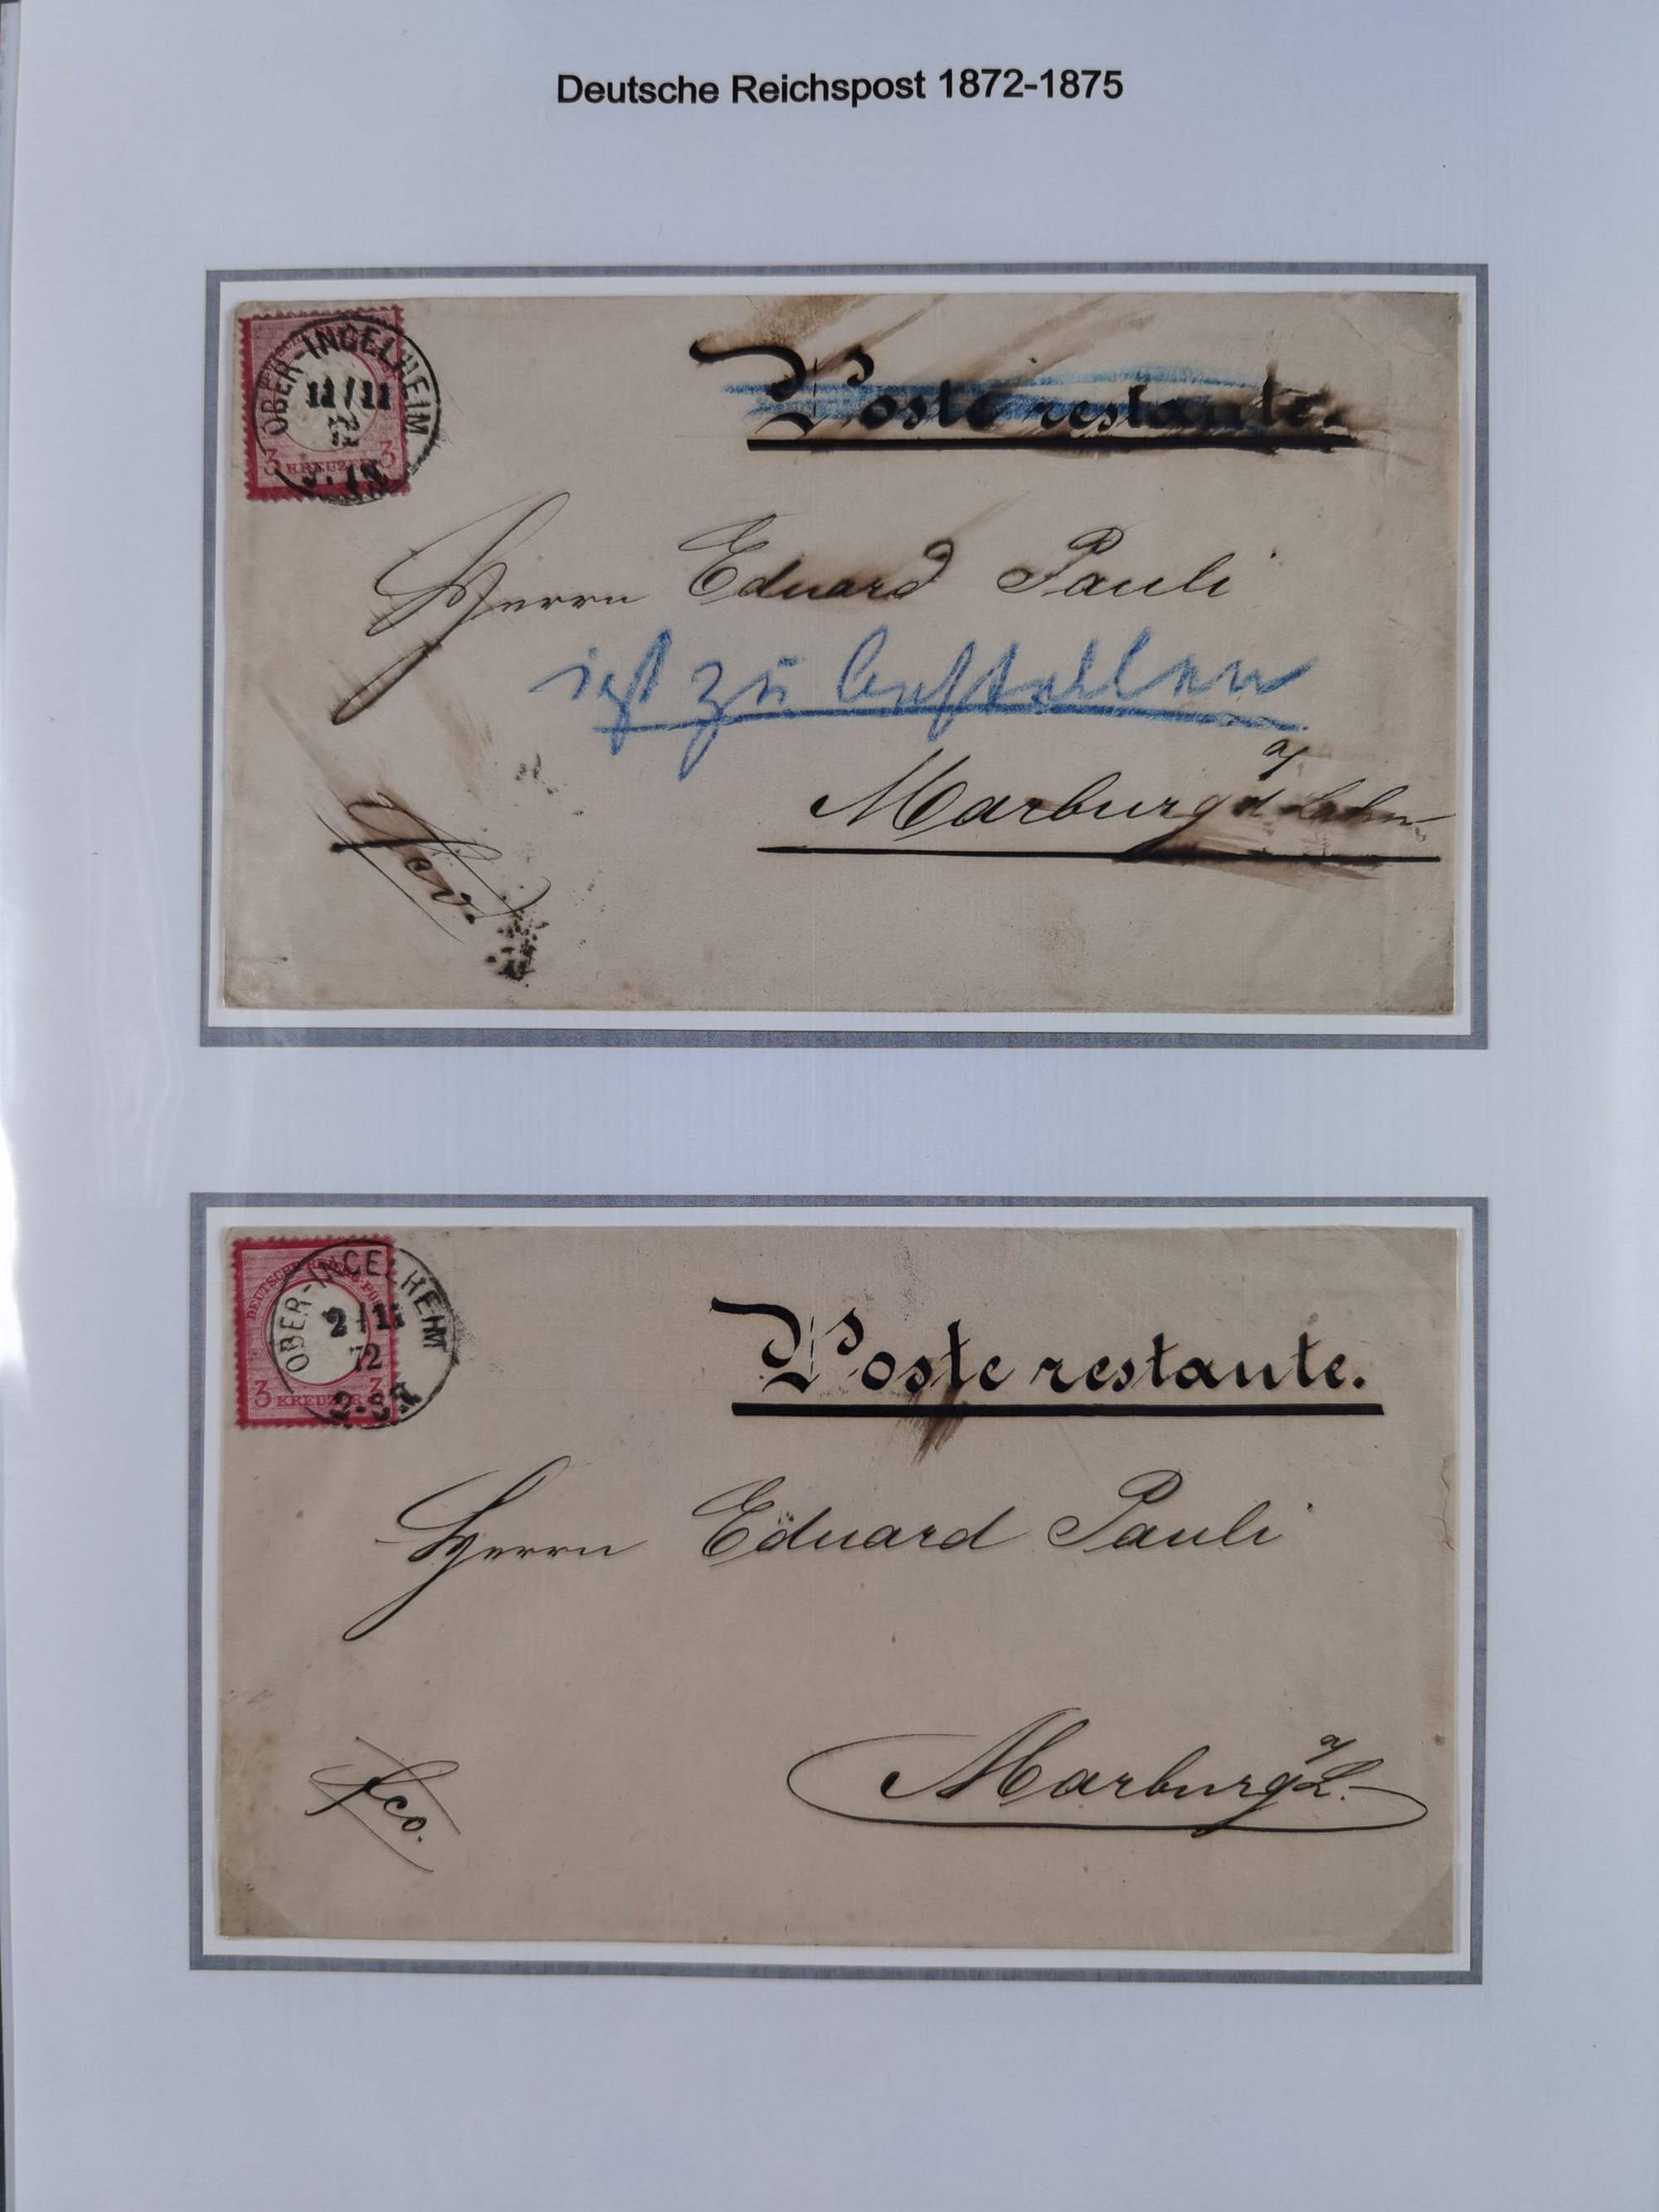 Deutsche Reichspost 1872-1875
OBER-INGELHEIM
11/11
72
3 KREUZER 3
Poste restante.
Herrn Eduard Pauli
ist zu bestellen
Marburg a/d Lahn
OBER-INGELHEIM
2/11
72
DEUTSCHE REICHS-POST
3 KREUZER 3
Poste restante.
Herrn Eduard Pauli
fco.
Marburg a/L.